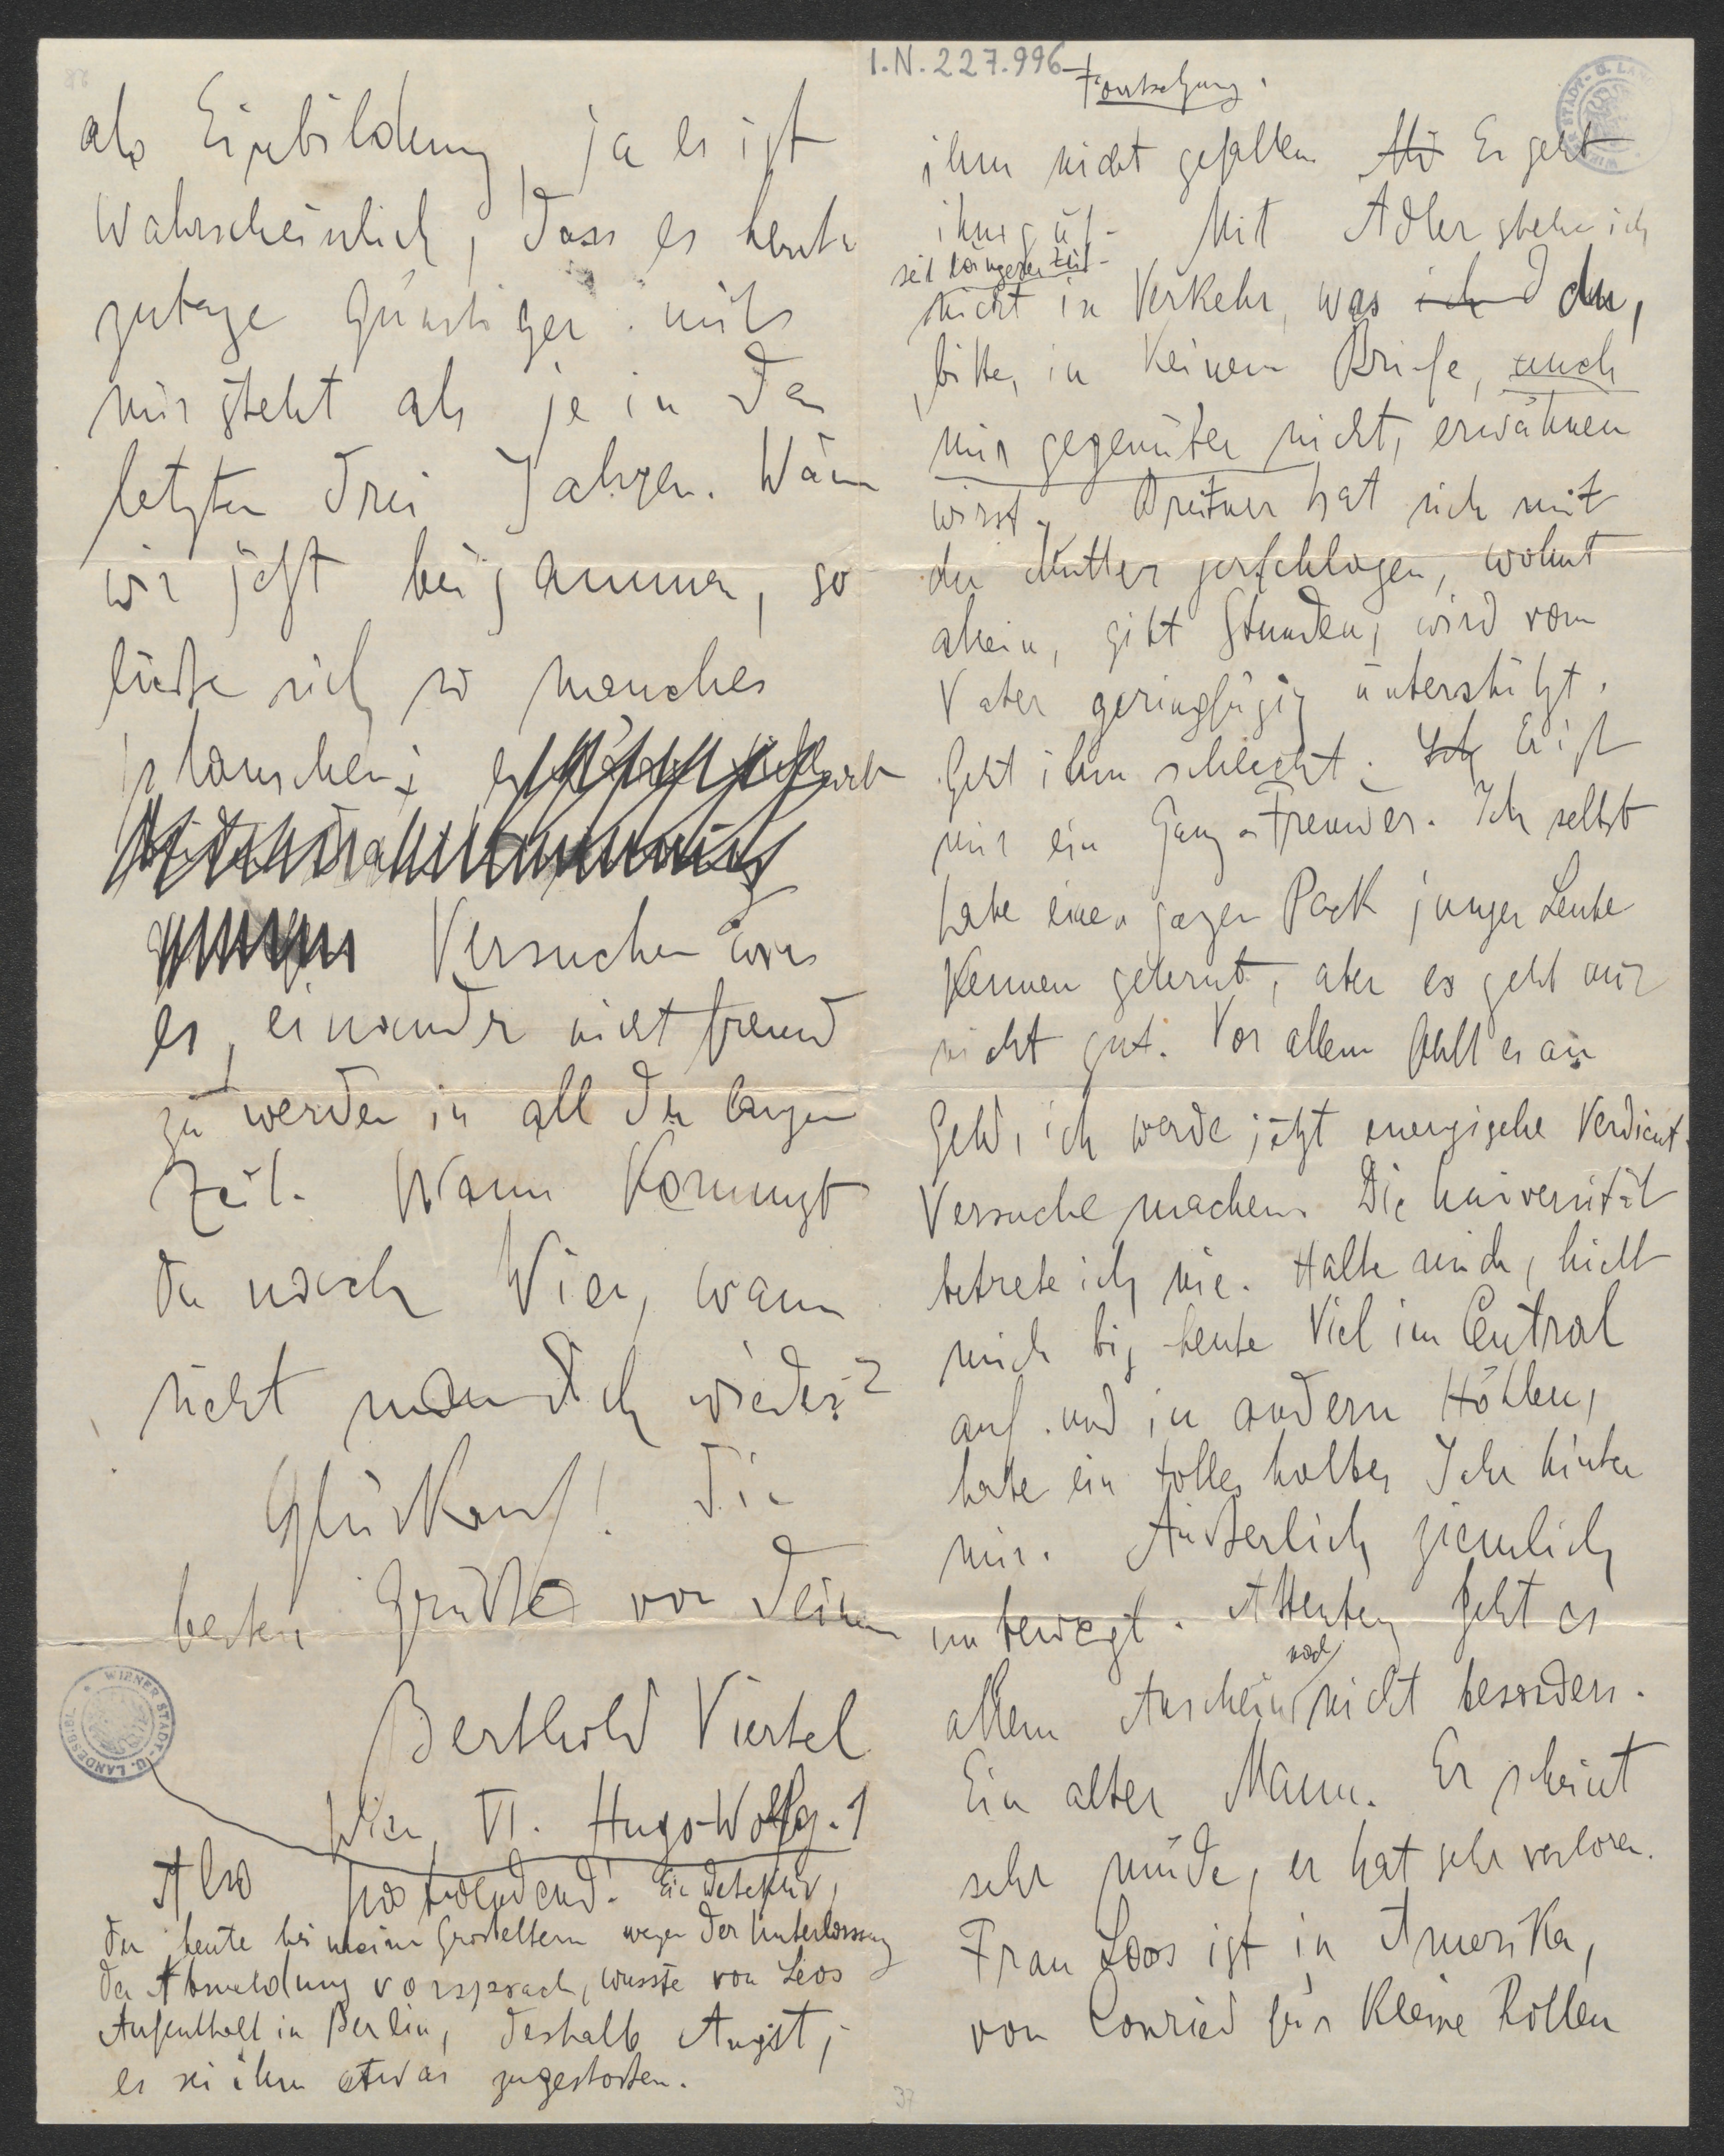 I.N. 227.996
als Einbildung, ja es ist
wahrscheinlich, dass es heute
zutage günstiger mits
mir steht als je in den
letzten drei Jahren. Wären
wir jetzt beisammen, so
ließe sich so manches
plauschen;
Versuchen wir
es, einander nicht fremd
zu werden in all der langen
Zeit. Wann kommst
du nach Wien, wann
sieht man dich wieder?
Glückauf! Die
besten Grüße von deinem
Berthold Viertel
Wien, VI. Hugo-Wolfg. 1
Also postwendend! Ein Detektiv,
der heute bei meinen Großeltern wegen der Unterlassung
der Abmeldung vorsprach, wusste von Leos
Aufenthalt in Berlin, deshalb Angst,
es sei ihm etwas zugestoßen.
WIENER STADT- U. LANDESBIBL.
Fortsetzung.
ihm nicht gefallen. Es geht
ihm gut. Mit Adler stehe ich
seit längerer Zeit
nicht in Verkehr, was ich du,
bitte, in keinem Briefe, auch
mir gegenüber nicht, erwähnen
wirst. hat sich mit
der Mutter zerschlagen, wohnt
allein, gibt Stunden, wird vom
Vater geringfügig unterstützt.
Geht ihm schlecht. Ich Er ist
mir ein Ganz-Fremder. Ich selbst
habe einen ganzen Pack junger Leute
kennen gelernt, aber es geht mir
nicht gut. Vor allem fehlt es an
Geld, ich werde jetzt energische Verdienst-
Versuche machen. Die Universität
betrete ich nie. Halte mich, hielt
mich bis heute viel im Central
auf und in andern Höhlen,
habe ein tolles halbes Jahr hinter
mir. Äußerlich ziemlich
unbewegt. Altenberg geht es
allem Anschein nach nicht besonders.
Ein alter Mann. Er scheint
sehr müde, er hat sehr verloren.
Frau Loos ist in Amerika,
von Conried für kleine Rollen
37